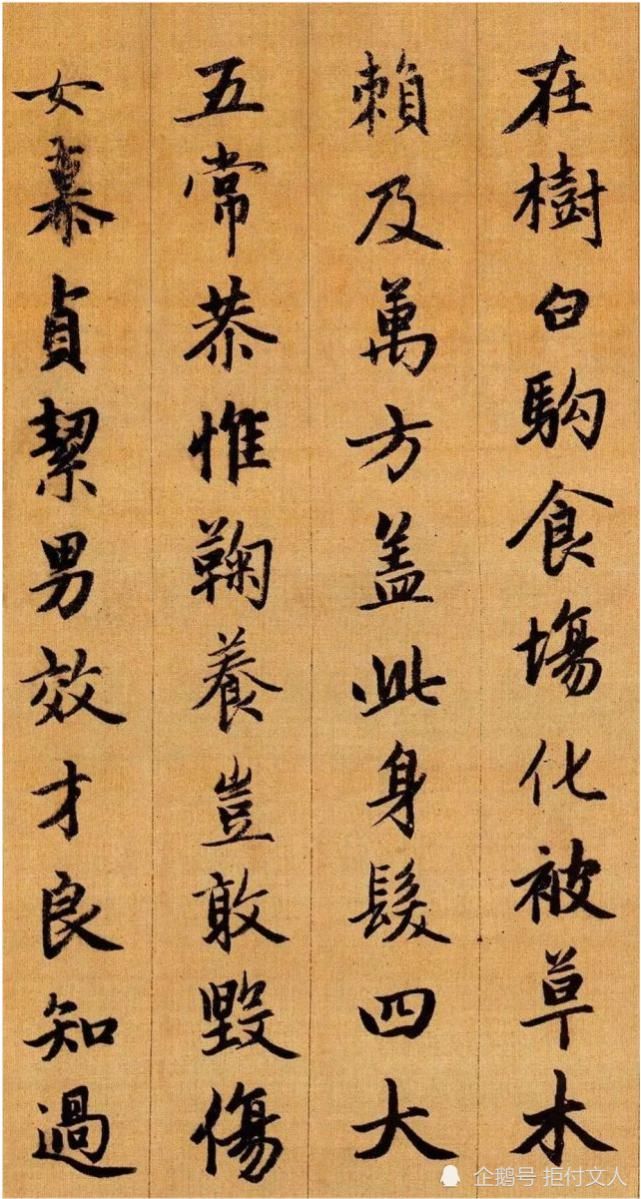 在樹白駒食場化被草木
賴及萬方盖此身髮四大
五常恭惟鞠養豈敢毀傷
女慕貞絜男效才良知過
企鹅号 拒付文人